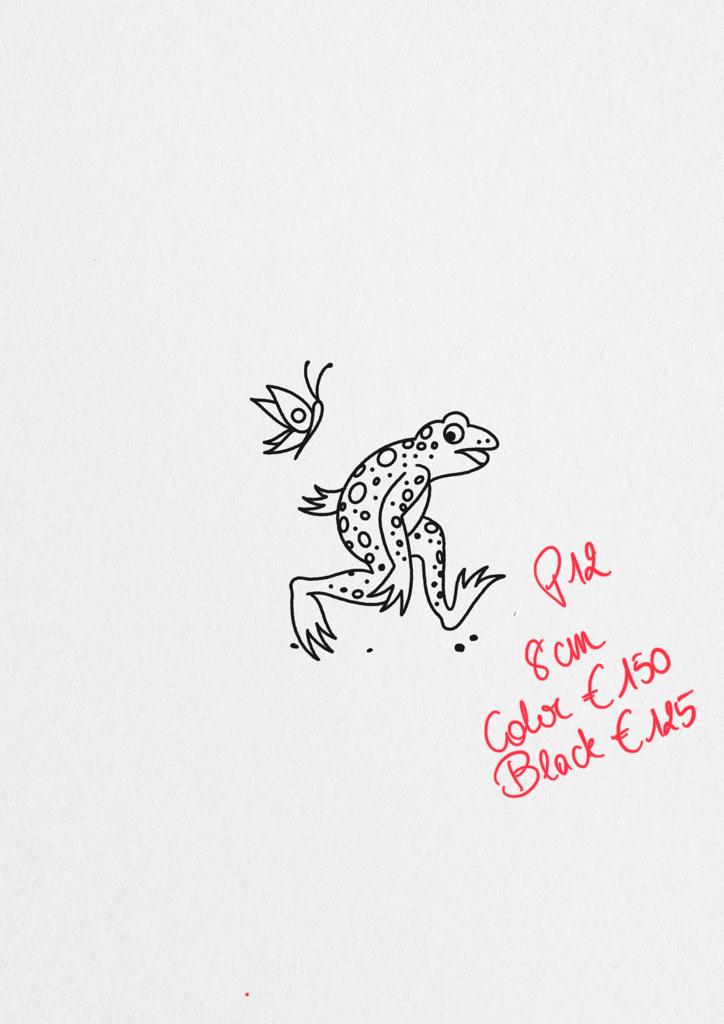 P12
8cm
Color €150
Black €125